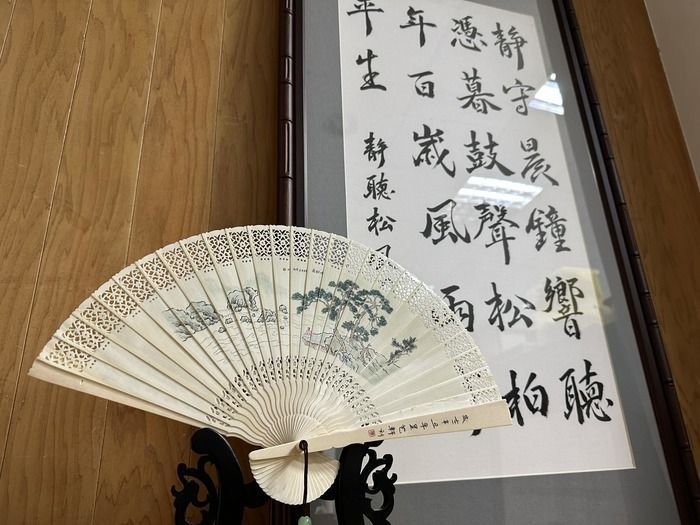 靜守晨鐘響聽
憑暮鼓聲松柏
年百歲風雨
平生
靜聽松風